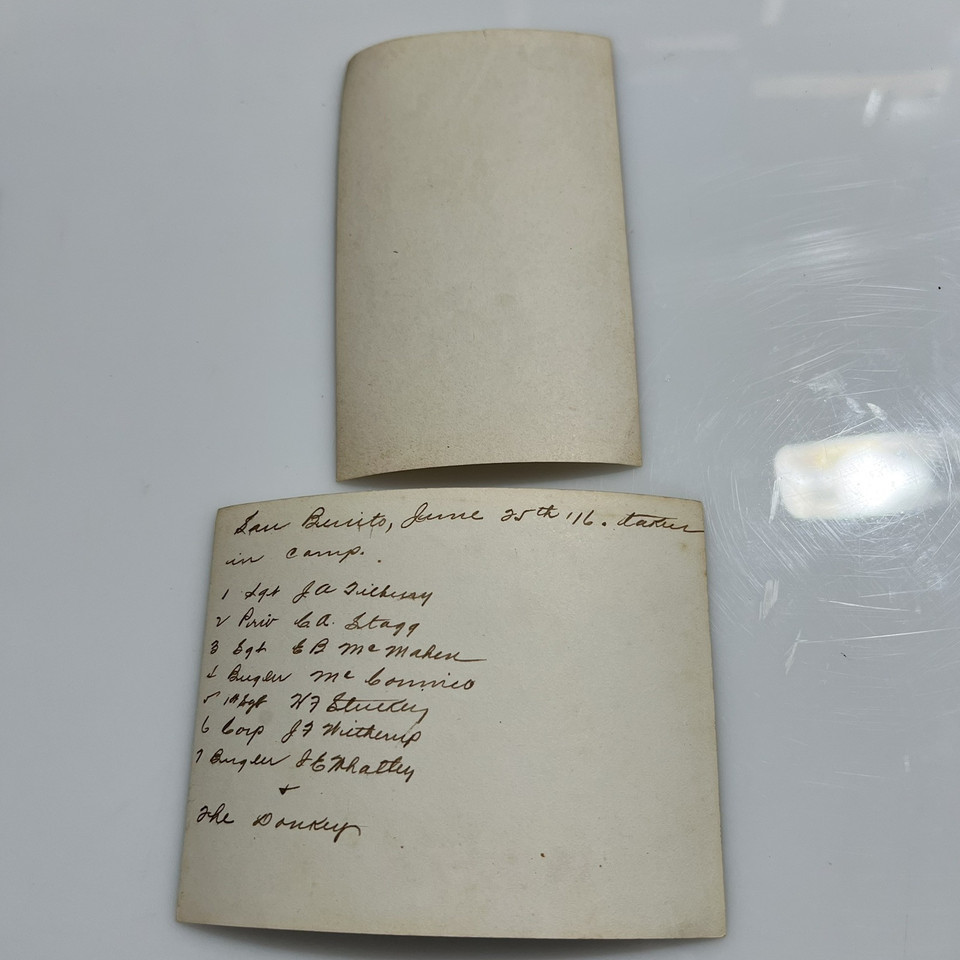 San Benito, June 25th '16. taken
in camp.
1 Sgt J A
2 Priv C A. Stagg
3 Sgt E B McMahen
4 Bugler McConnico
5 1st Sgt H F Stuckey
6 Corp J F Witherup
7 Bugler J E Whatley
+
The Donkey